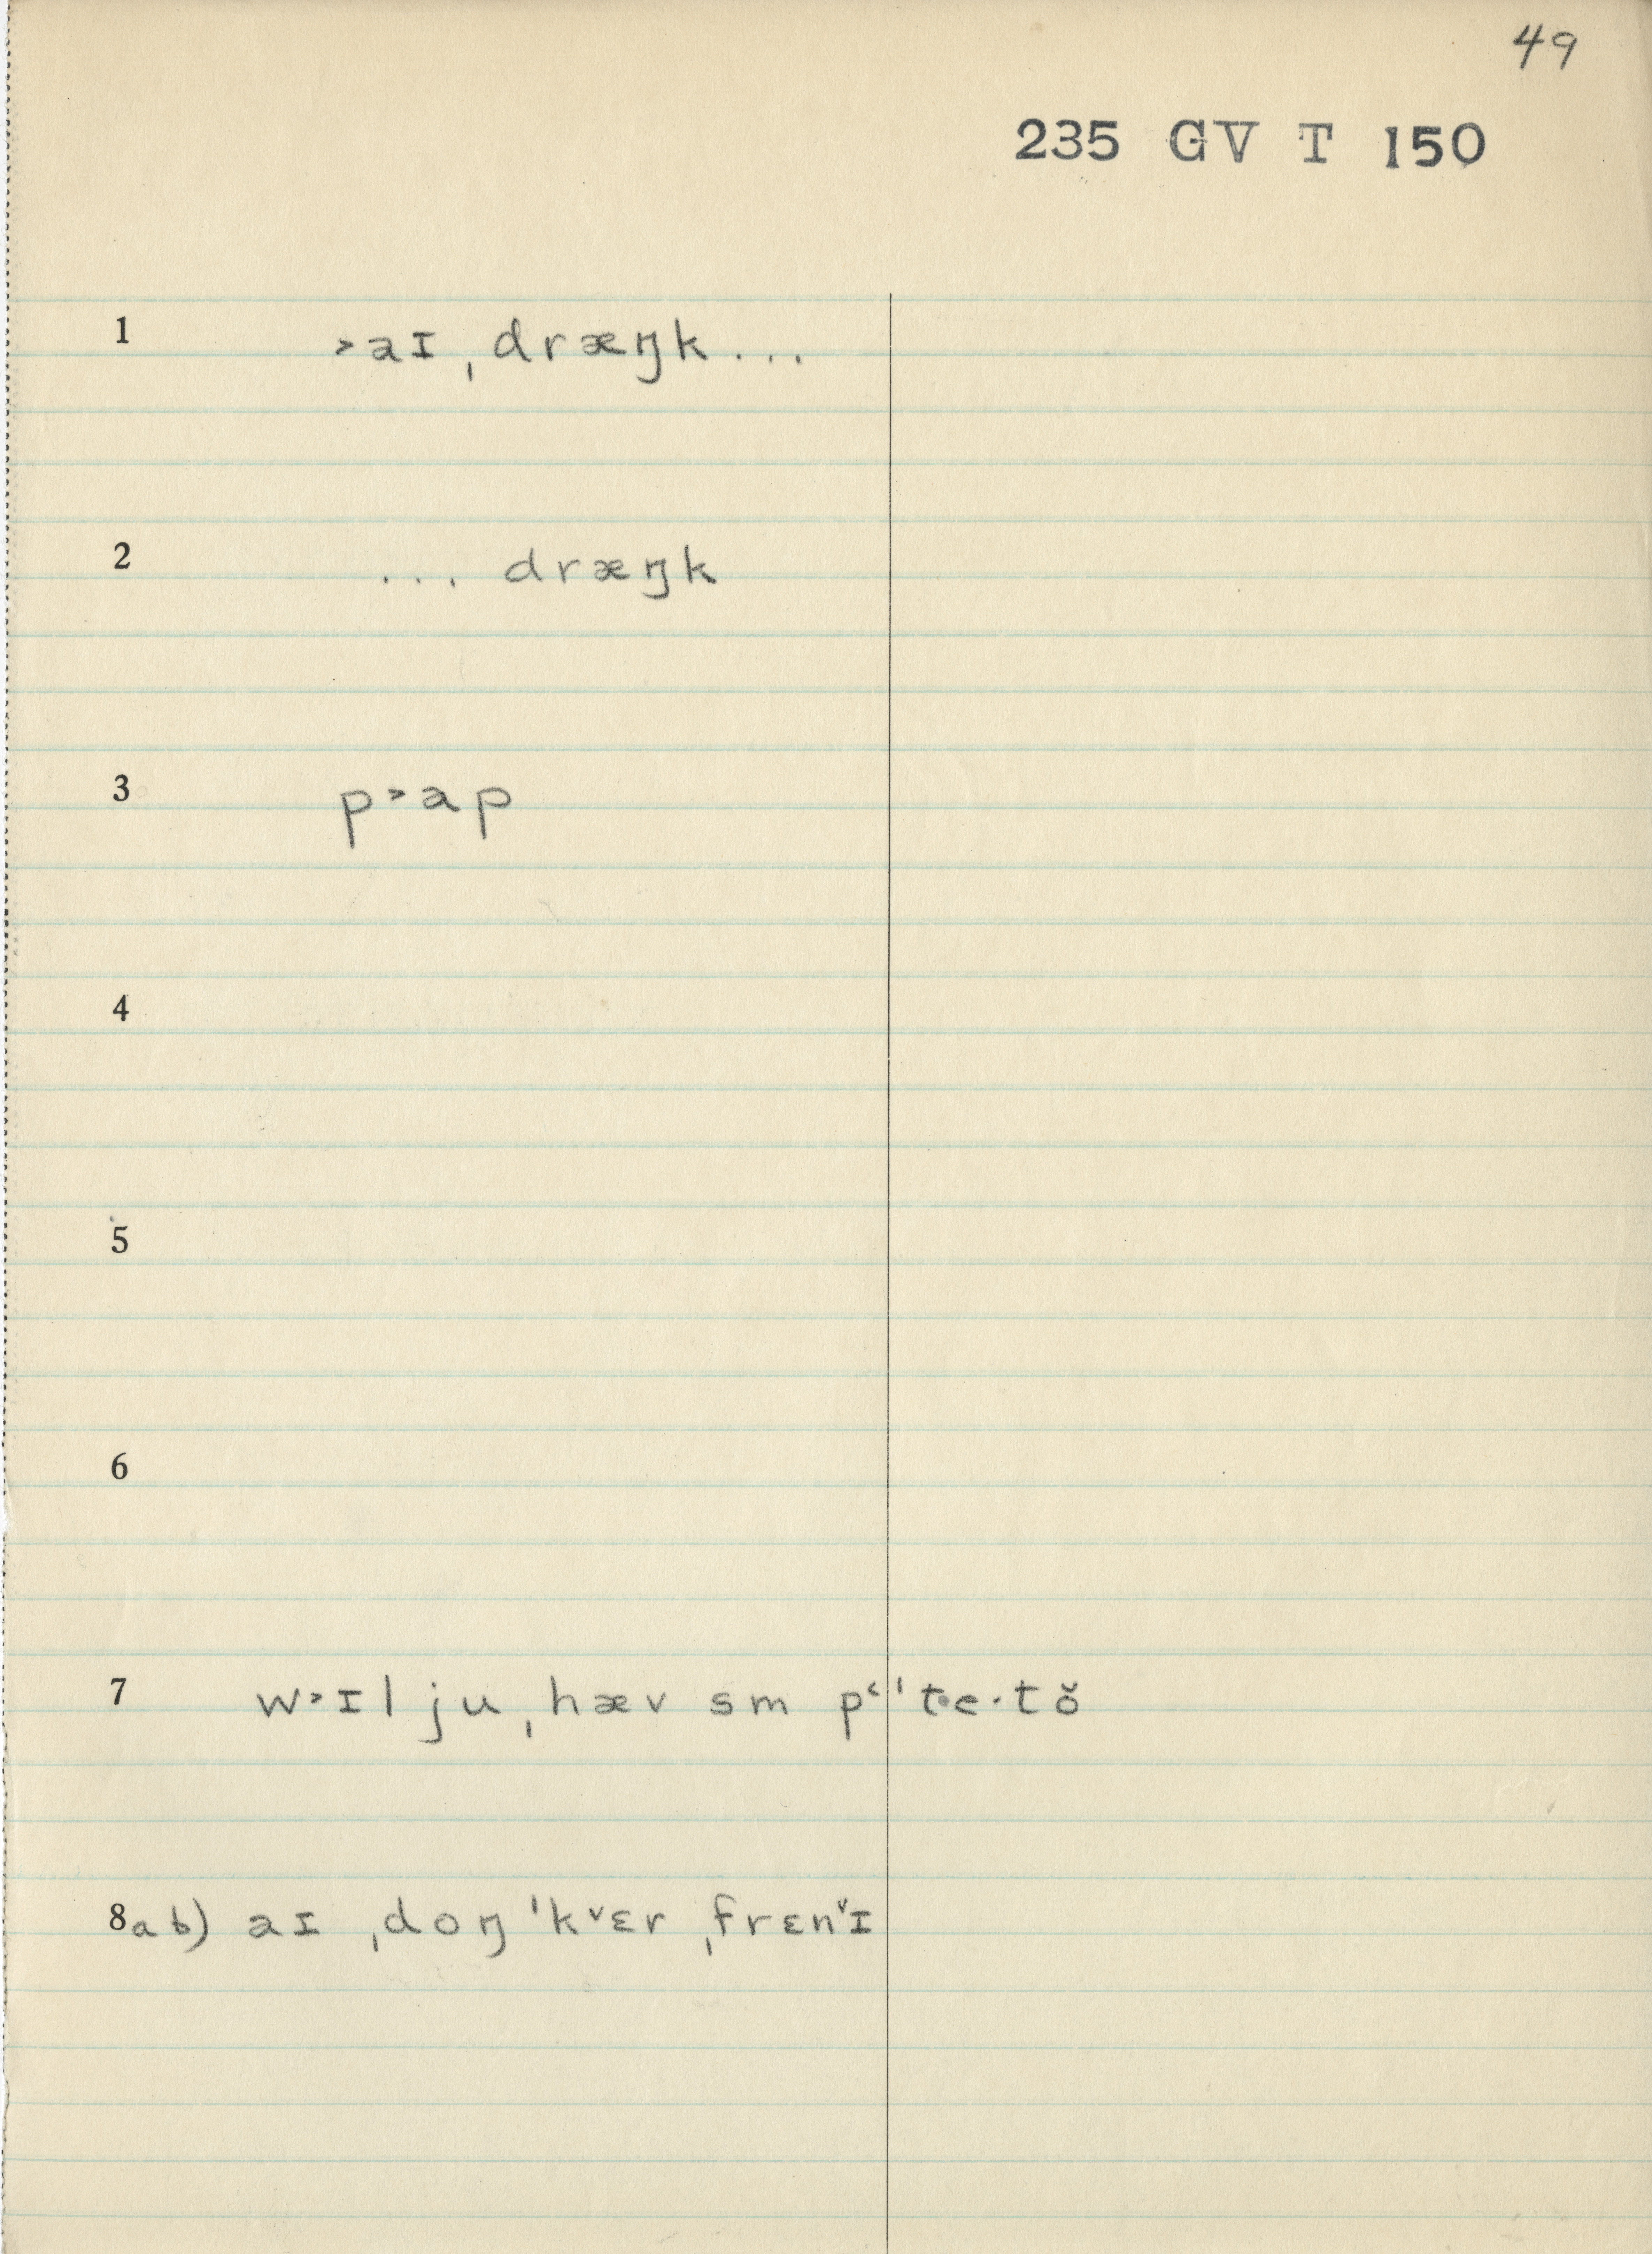 49
235 GV T 150
1 ˃aɪ ˌdræŋk...
2 ... dræŋk
3 p˃ap
4
5
6
7 w˃ɪl ju ˌhæv sm pʻˈte·tŏ
8ab) aɪ ˌdoŋ ˈk˅ɛr ˌfrɛn˅ɪ